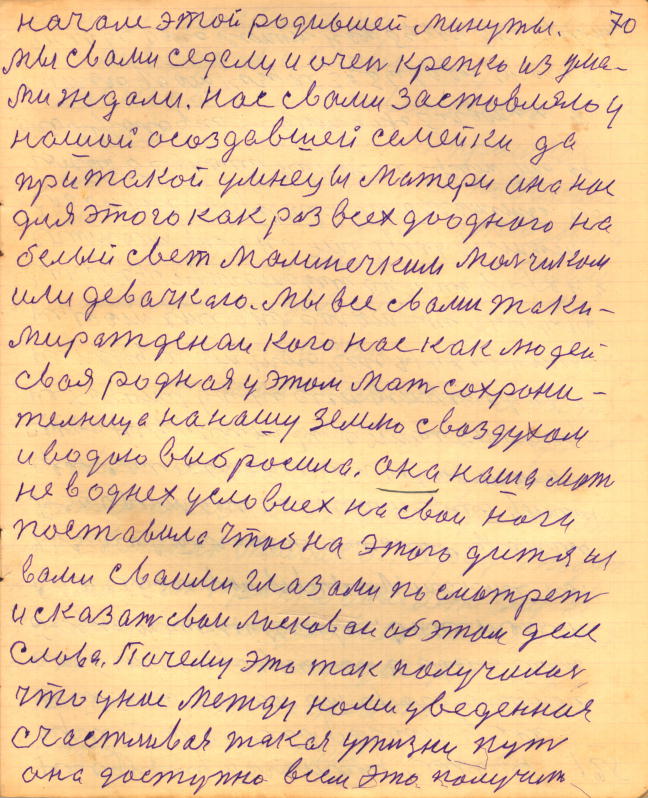 начале этой родившей минуты. 70
мы свами седели и очен крепко из ума-
ми ждали. нас свами застовляло у
нашой осоздавшей семейки да
при такой умнецы матери она нас
для этого как раз всех доодного на
белый свет малинечким молчиком
или девачкаю. мы все свами таки-
ми ражденаи кого нас как людей
своя родная у этом мат сохрани-
телница на нашу землю своздухом
и водою выбросила. она наша мат
не в однех условиех на свои ноги
поставила чтоб на этого дитя и
вами сваими глазами посмотрет
и сказат свои ласковаи об этом деле
слова. Почему это так получилас
что у нас между нами уведенная
счастливая такая ужизни пут
она доступно всем это получит